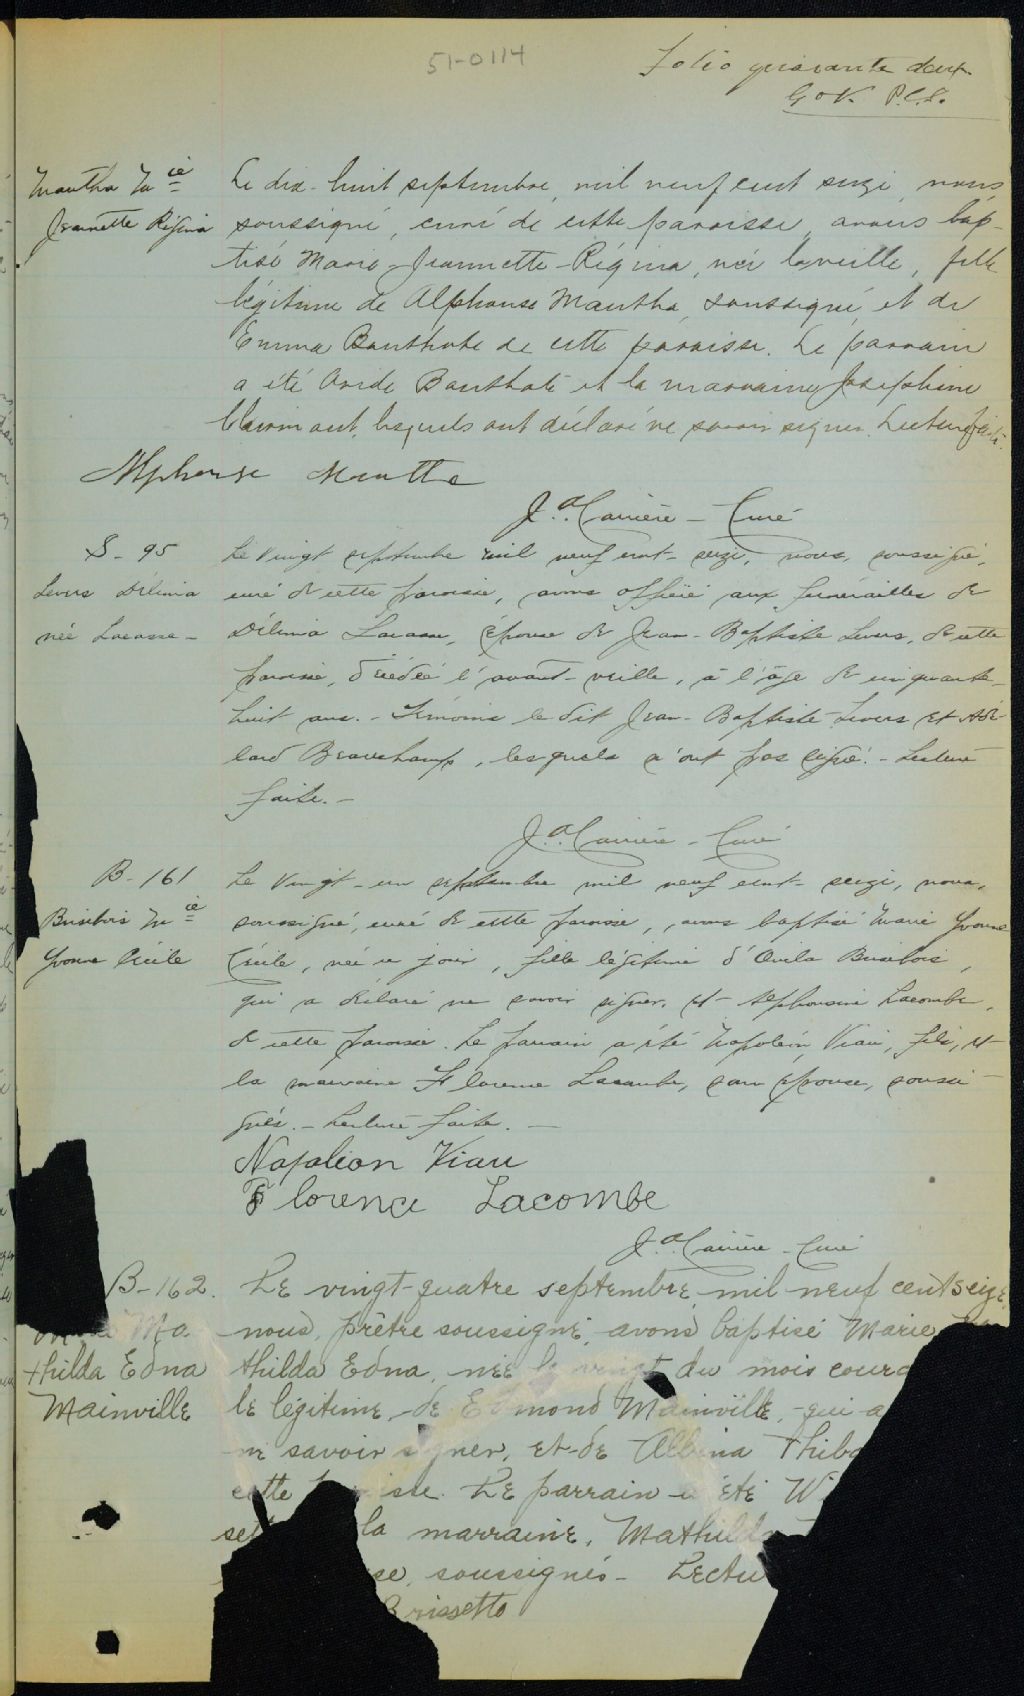 51-0114
Folio quarante deux.
G o V. P.C.S.
Mantha M ie
Jeannette Régina
Le dix-huit septembre mil neuf cent seize, nous,
soussigné, curé de cette paroisse, avons bap-
tisé Marie-Jeannette-Régina, née la veille, fille
légitime de Alphonse Mantha, soussigné, et de
Emma Bauthate de cette paroisse. Le parrain
a été Bauthate et la marraine Joséphine
Clairmont, lesquels ont déclaré ne savoir signer. Lecture faite.
Alphonse Mantha
J.A. Carrière - Curé
S - 95
Levers Délima
née Lacasse -
Le vingt septembre mil neuf cent-seize, nous, soussigné,
curé de cette paroisse, avons officié aux funérailles de
Délima Lacasse, épouse de Jean-Baptiste Levers, de cette
paroisse, décédée l'avant-veille, à l'âge de cinquante-
huit ans. - Témoins le dit Jean-Baptiste Levers et Adé-
lard Beauchamp, lesquels n'ont pas signé. - Lecture
faite. -
J.A. Carrière - Curé
B - 161
Brisebois M ie
Yvonne Cécile
Le vingt-un septembre mil neuf cent-seize, nous,
soussigné, curé de cette paroisse, avons baptisé Marie Yvonne
Cécile, née ce jour, fille légitime d'Ovila Brisebois,
qui a déclaré ne savoir signer, et Alphonsine Lacombe,
de cette paroisse. Le parrain a été Napoléon Viau, fils, et
la marraine Florence Lacombe, son épouse, soussi-
gnés. - Lecture faite. -
Napoléon Viau
Florence Lacombe
J.A. Carrière - Curé
B-162.
Ma
thilda Edna
Mainville
Le vingt-quatre septembre mil neuf cent seize,
nous, prêtre soussigné, avons baptisé Marie
thilda Edna, née le vingt du mois cour
le légitime de Edmond Mainville, qui a
ne savoir signer, et de Albina Thib
cette paroisse. Le parrain a été W
la marraine, Mathilda
se, soussignés - Lectu
Brissette